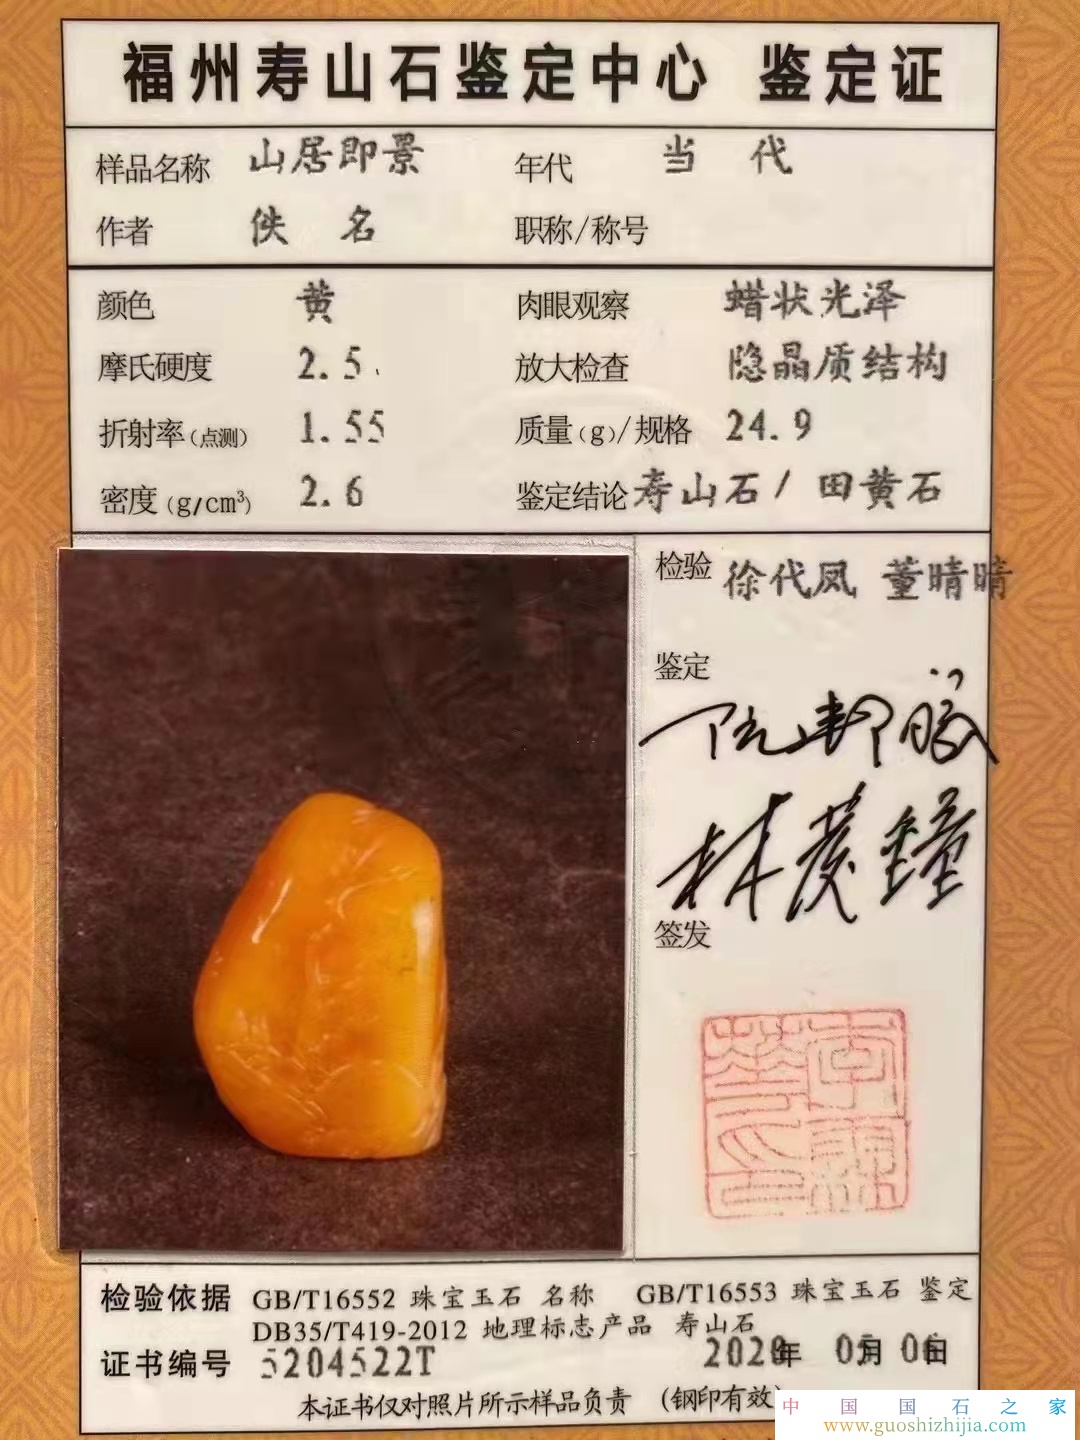 福州寿山石鉴定中心 鉴定证
样品名称 山居即景 年代 当 代
作者 佚 名 职称/称号
颜色 黄 肉眼观察 蜡状光泽
摩氏硬度 2.5 放大检查 隐晶质结构
折射率(点测) 1.55 质量(g)/规格 24.9
密度(g/cm³) 2.6 鉴定结论 寿山石/ 田黄石
检验 徐代凤 董晴晴
鉴定
签发
检验依据 GB/T16552 珠宝玉石 名称 GB/T16553 珠宝玉石 鉴定
DB35/T419-2012 地理标志产品 寿山石
证书编号 5204522T 2020年 05月 06日
本证书仅对照片所示样品负责 (钢印有效)
中国国石之家
www.guoshizhijia.com